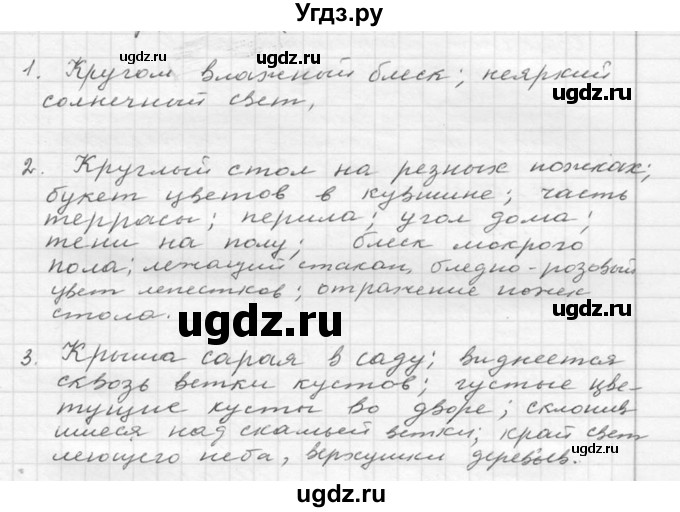 Угдз.ру
1. Кругом влажный блеск; неяркий
солнечный свет,
ugdz.ru
ugdz.ru
2. Круглый стол на резных ножках;
букет цветов в кувшине; часть
террасы; перила; угол дома;
тени на полу; блеск мокрого
пола; лежащий стакан, бледно-розовый
цвет лепестков; отражение ножек
стола.
ugdz.ru
ugdz.ru
ugdz.ru
ugdz.ru
3. Крыша сарая в саду; виднеется
сквозь ветки кустов; густые цве-
тущие кусты во дворе; склонив
шиеся над скамьей ветки; край свет
леющего неба, верхушки деревьев.
ugdz.ru
ugdz.ru
ugdz.ru